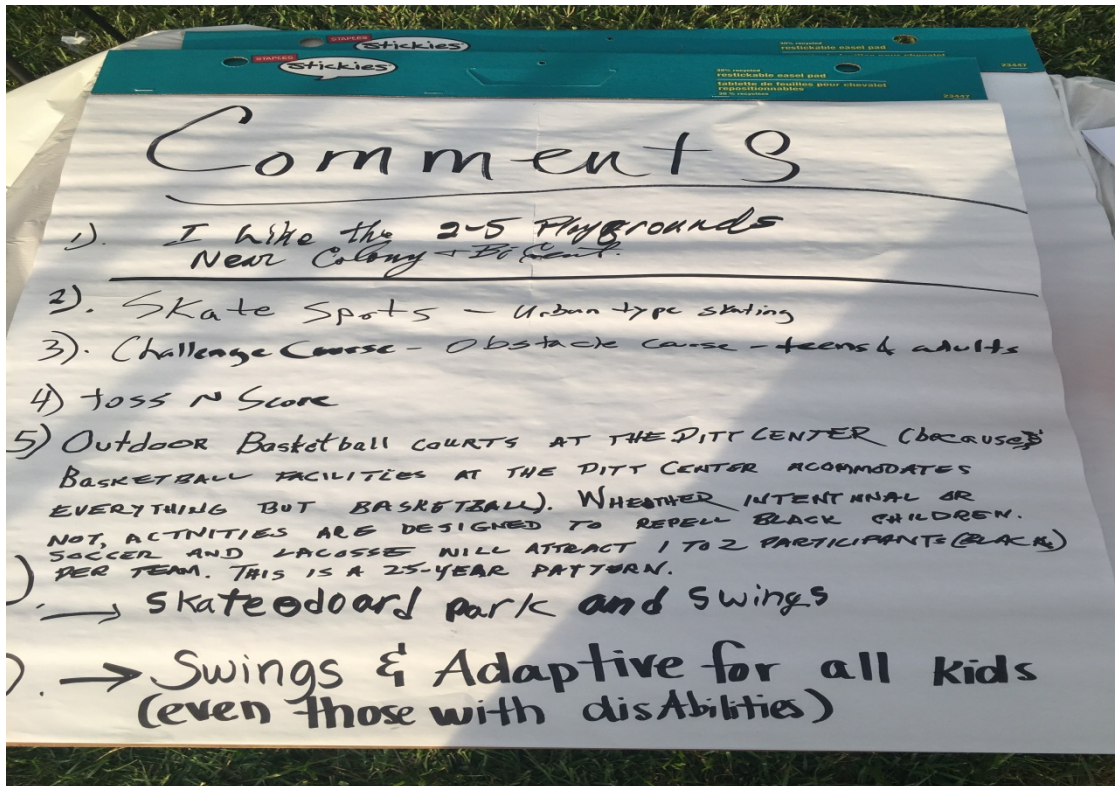 STAPLES stickies
restickable easel pad
STAPLES stickies
50% recycled
restickable easel pad
tablette de feuilles pour chevalet
repositionnables
23447
23447
Comments
1). I like the 2-5 Playgrounds
Near Colony + BiCent.
2). Skate Spots - Urban type skating
3). Challenge Course - Obstacle course - teens & adults
4) Toss N Score
5) Outdoor Basketball courts AT THE DITT CENTER (because
BASKETBALL FACILITIES AT THE DITT CENTER ACOMMODATES
EVERYTHING BUT BASKETBALL). WHEATHER INTENTIONAL OR
NOT, ACTIVITIES ARE DESIGNED TO REPELL BLACK CHILDREN.
SOCCER AND LACOSSE WILL ATTRACT 1 TO 2 PARTICIPANTS (BLACK)
PER TEAM. THIS IS A 25-YEAR PATTERN.
). → Skateodoard park and swings
). → Swings & Adaptive for all kids
(even those with disAbilities)